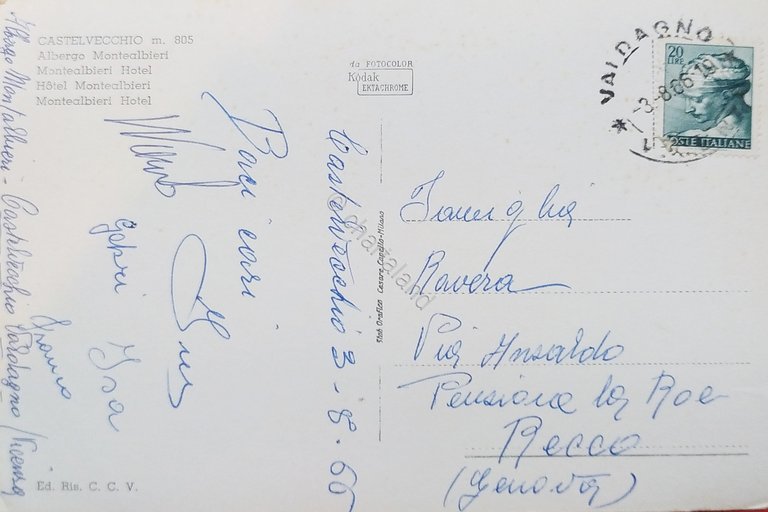 CASTELVECCHIO m. 805
Albergo Montealbieri
Montealbieri Hotel
Hôtel Montealbieri
Montealbieri Hotel
da FOTOCOLOR
Kodak
EKTACHROME
VALDAGNO
-3-8-66-19
20
LIRE
POSTE ITALIANE
Castelvecchio 3-8-66
Baci cari
Isa
Albergo Montalbieri - Castelvecchio Valdagno (Vicenza
Stab Grafico Cesare Capello-Milano
chartaland
Famiglia
Ravera
Via Ansaldo
Pensione La Roe
Recco
(Genova)
Ed. Ris. C. C. V.